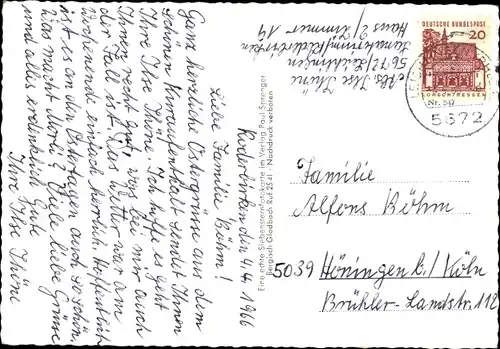 Abs. Ilse Thöne
5672 Leichlingen
Sanatorium Roderbirken
Haus 2/Zimmer 14
DEUTSCHE BUNDESPOST
20
LORSCH/HESSEN
5672
Roderbirken, den 4.4.1966
Liebe Familie Böhm!
Ganz herzliche Ostergrüsse aus dem
schönen Kuraufenthalt sendet Ihnen
Ihre Ilse Thöne. Ich hoffe es geht
Ihnen recht gut, was bei mir auch
der Fall ist. Das Wetter war am
Wochenende einfach herrlich. Hoffentlich
ist es an den Ostertagen auch so schön.
Was macht Viele liebe Grüsse
und alles erdenklich Gute
Ihre Ilse Thöne
Eine echte Siebensternfotokarte im Verlag Paul Sprenger
Bergisch Gladbach Ruf 2541 · Nachdruck verboten
Familie
Alfons Böhm
5039 Höningen b./Köln
Brühler-Landstr. 112